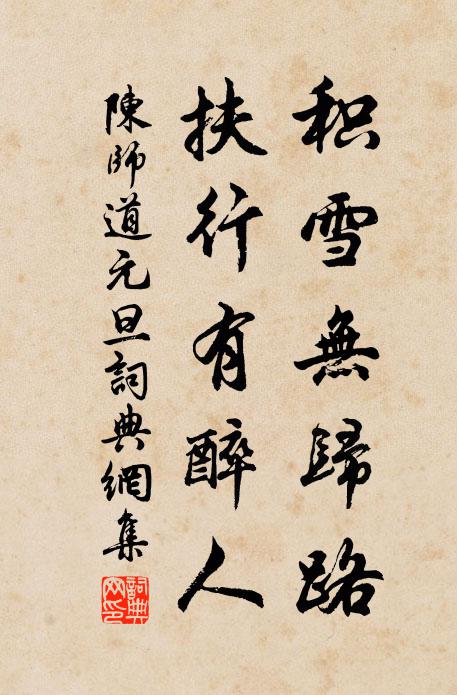 积雪無歸路
扶行有醉人
陳師道元旦詞典網集
詞典网印